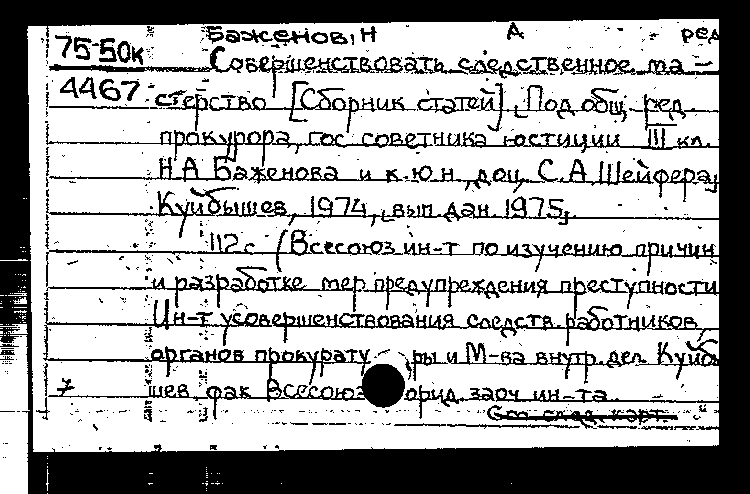 Баженов, Н А ред
75-50к Совершенствовать следственное ма-
4467 стерство [Сборник статей]. [Под общ. ред.
прокурора, гос советника юстиции III кл.
Н А Баженова и к.ю.н., доц. С.А Шейфера]
Куйбышев, 1974, [вып дан. 1975].
112 с (Всесоюз ин-т по изучению причин
и разработке мер предупреждения преступности
Ин-т усовершенствования следств. работников,
органов прокурату ры и М-ва внутр. дел Куйбы
7 шев. фак Всесоюз юрид. заоч ин-та.
См след. карт.